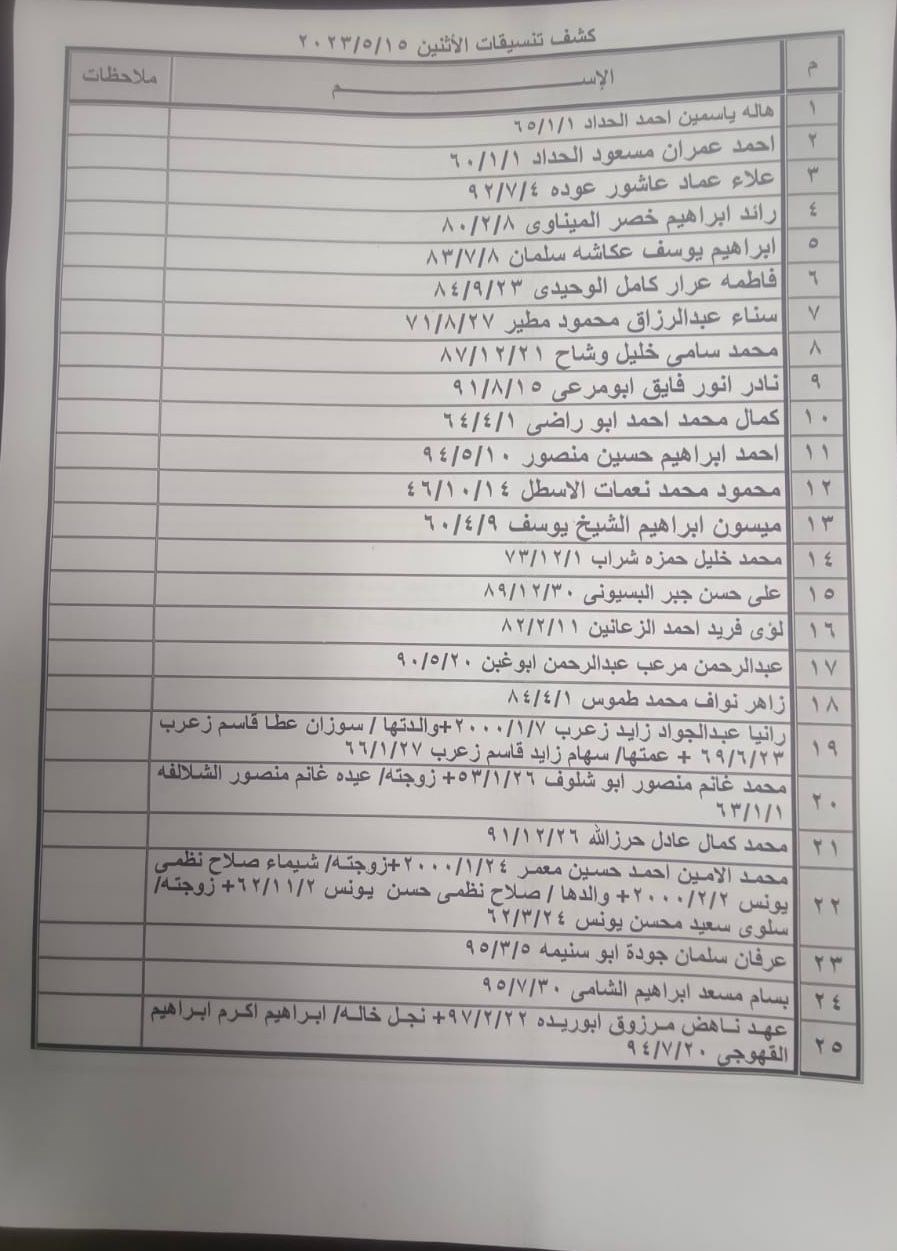 كشف تنسيقات الأثنين ٢٠٢٣/٥/١٥
م الإســـــــــــم ملاحظات
١ هاله ياسمين احمد الحداد ٦٥/١/١
٢ احمد عمران مسعود الحداد ٦٠/١/١
٣ علاء عماد عاشور عوده ٩٢/٧/٤
٤ رائد ابراهيم خضر الميناوى ٨٠/٢/٨
٥ ابراهيم يوسف عكاشه سلمان ٨٣/٧/٨
٦ فاطمه عرار كامل الوحيدى ٨٤/٩/٢٣
٧ سناء عبدالرزاق محمود مطير ٧١/٨/٢٧
٨ محمد سامى خليل وشاح ٨٧/١٢/٢١
٩ نادر انور فايق ابومرعى ٩١/٨/١٥
١٠ كمال محمد احمد ابو راضى ٦٤/٤/١
١١ احمد ابراهيم حسين منصور ٩٤/٥/١٠
١٢ محمود محمد نعمات الاسطل ٤٦/١٠/١٤
١٣ ميسون ابراهيم الشيخ يوسف ٦٠/٤/٩
١٤ محمد خليل حمزه شراب ٧٣/١٢/١
١٥ على حسن جبر البسيونى ٨٩/١٢/٣٠
١٦ لؤى فريد احمد الزعانين ٨٢/٢/١١
١٧ عبدالرحمن مرعب عبدالرحمن ابوغبن ٩٠/٥/٢٠
١٨ زاهر نواف محمد طموس ٨٤/٤/١
١٩ رانيا عبدالجواد زايد زعرب ٢٠٠٠/١/٧+والدتها / سوزان عطا قاسم زعرب
٦٩/٦/٢٣ + عمتها/ سهام زايد قاسم زعرب ٦٦/١/٢٧
٢٠ محمد غانم منصور ابو شلوف ٥٣/١/٢٦+ زوجته/ عيده غانم منصور الشلالفه
٦٣/١/١
٢١ محمد كمال عادل حرزالله ٩١/١٢/٢٦
٢٢ محمد الامين احمد حسين معمر ٢٠٠٠/١/٢٤+زوجته/ شيماء صلاح نظمى
يونس ٢٠٠٠/٢/٢+ والدها / صلاح نظمى حسن يونس ٦٢/١١/٢+ زوجته/
سلوى سعيد محسن يونس ٦٢/٣/٢٤
٢٣ عرفان سلمان جودة ابو سنيمه ٩٥/٣/٥
٢٤ بسام مسعد ابراهيم الشامى ٩٥/٧/٣٠
٢٥ عهد ناهض مرزوق ابوريده ٩٧/٢/٢٢+ نجل خاله/ ابراهيم اكرم ابراهيم
القهوجي ٩٤/٧/٢٠